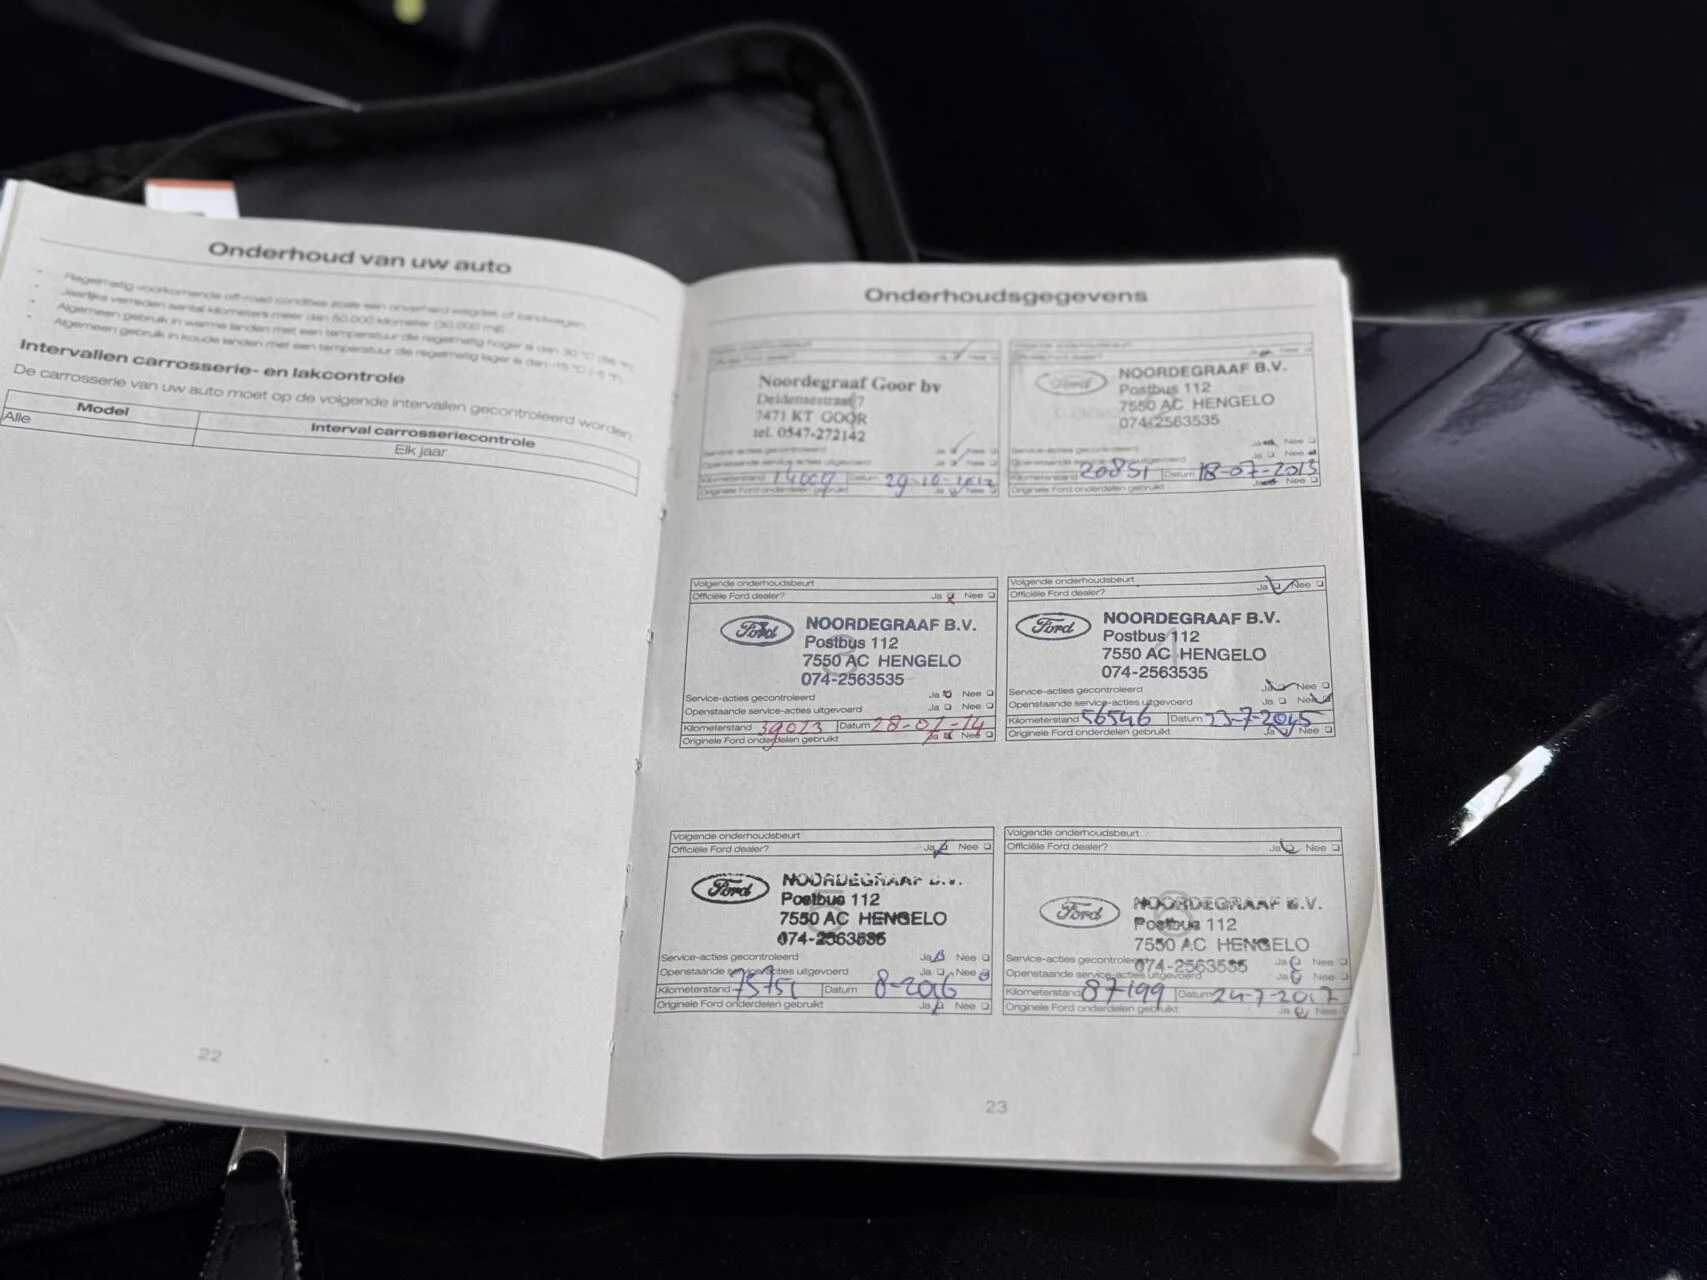 Onderhoud van uw auto
Regelmatig voorkomende off-road condities zoals een onverhard wegdek of zandwegen.
Jaarlijks verreden aantal kilometers meer dan 50.000 kilometer (30.000 mijl).
Algemeen gebruik in warme landen met een temperatuur die regelmatig hoger is dan 30 °C (86 °F).
Algemeen gebruik in koude landen met een temperatuur die regelmatig lager is dan -15 °C (-5 °F).
Intervallen carrosserie- en lakcontrole
De carrosserie van uw auto moet op de volgende intervallen gecontroleerd worden:
Model Interval carrosseriecontrole
Alle Elk jaar
22
Onderhoudsgegevens
Ja Nee
Noordegraaf Goor bv
7471 KT GOOR
tel. 0547-272142
Service-acties gecontroleerd Ja Nee
Openstaande service-acties uitgevoerd Ja Nee
Kilometerstand 14009 Datum 29-10-2012
Originele Ford onderdelen gebruikt Ja Nee
Nee
Ford NOORDEGRAAF B.V.
Postbus 112
7550 AC HENGELO
074-2563535
Ja Nee
Ja Nee
Kilometerstand 20851 Datum 18-07-2013
Originele Ford onderdelen gebruikt Nee
Volgende onderhoudsbeurt
Officiële Ford dealer? Ja Nee
Ford NOORDEGRAAF B.V.
Postbus 112
7550 AC HENGELO
074-2563535
Service-acties gecontroleerd Ja Nee
Openstaande service-acties uitgevoerd Ja Nee
Kilometerstand 39023 Datum 28-07-14
Originele Ford onderdelen gebruikt Ja Nee
Volgende onderhoudsbeurt
Officiële Ford dealer? Ja Nee
Ford NOORDEGRAAF B.V.
Postbus 112
7550 AC HENGELO
074-2563535
Service-acties gecontroleerd Ja Nee
Openstaande service-acties uitgevoerd Nee
Kilometerstand 56546 Datum 23-7-2015
Originele Ford onderdelen gebruikt Ja Nee
Volgende onderhoudsbeurt
Officiële Ford dealer? Ja Nee
Ford NOORDEGRAAF B.V.
Postbus 112
7550 AC HENGELO
074-2563535
Service-acties gecontroleerd Ja Nee
Openstaande service-acties uitgevoerd Ja Nee
Kilometerstand 75751 Datum 8-2016
Originele Ford onderdelen gebruikt Ja Nee
Volgende onderhoudsbeurt
Officiële Ford dealer? Ja Nee
Ford NOORDEGRAAF B.V.
Postbus 112
7550 AC HENGELO
074-2563535
Service-acties gecontroleerd Ja Nee
Openstaande service-acties uitgevoerd Ja Nee
Kilometerstand 87199 Datum 24-7-2017
Originele Ford onderdelen gebruikt Ja Nee
23